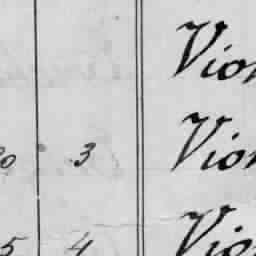 Vion
0 3 Vion
5 4 Vion